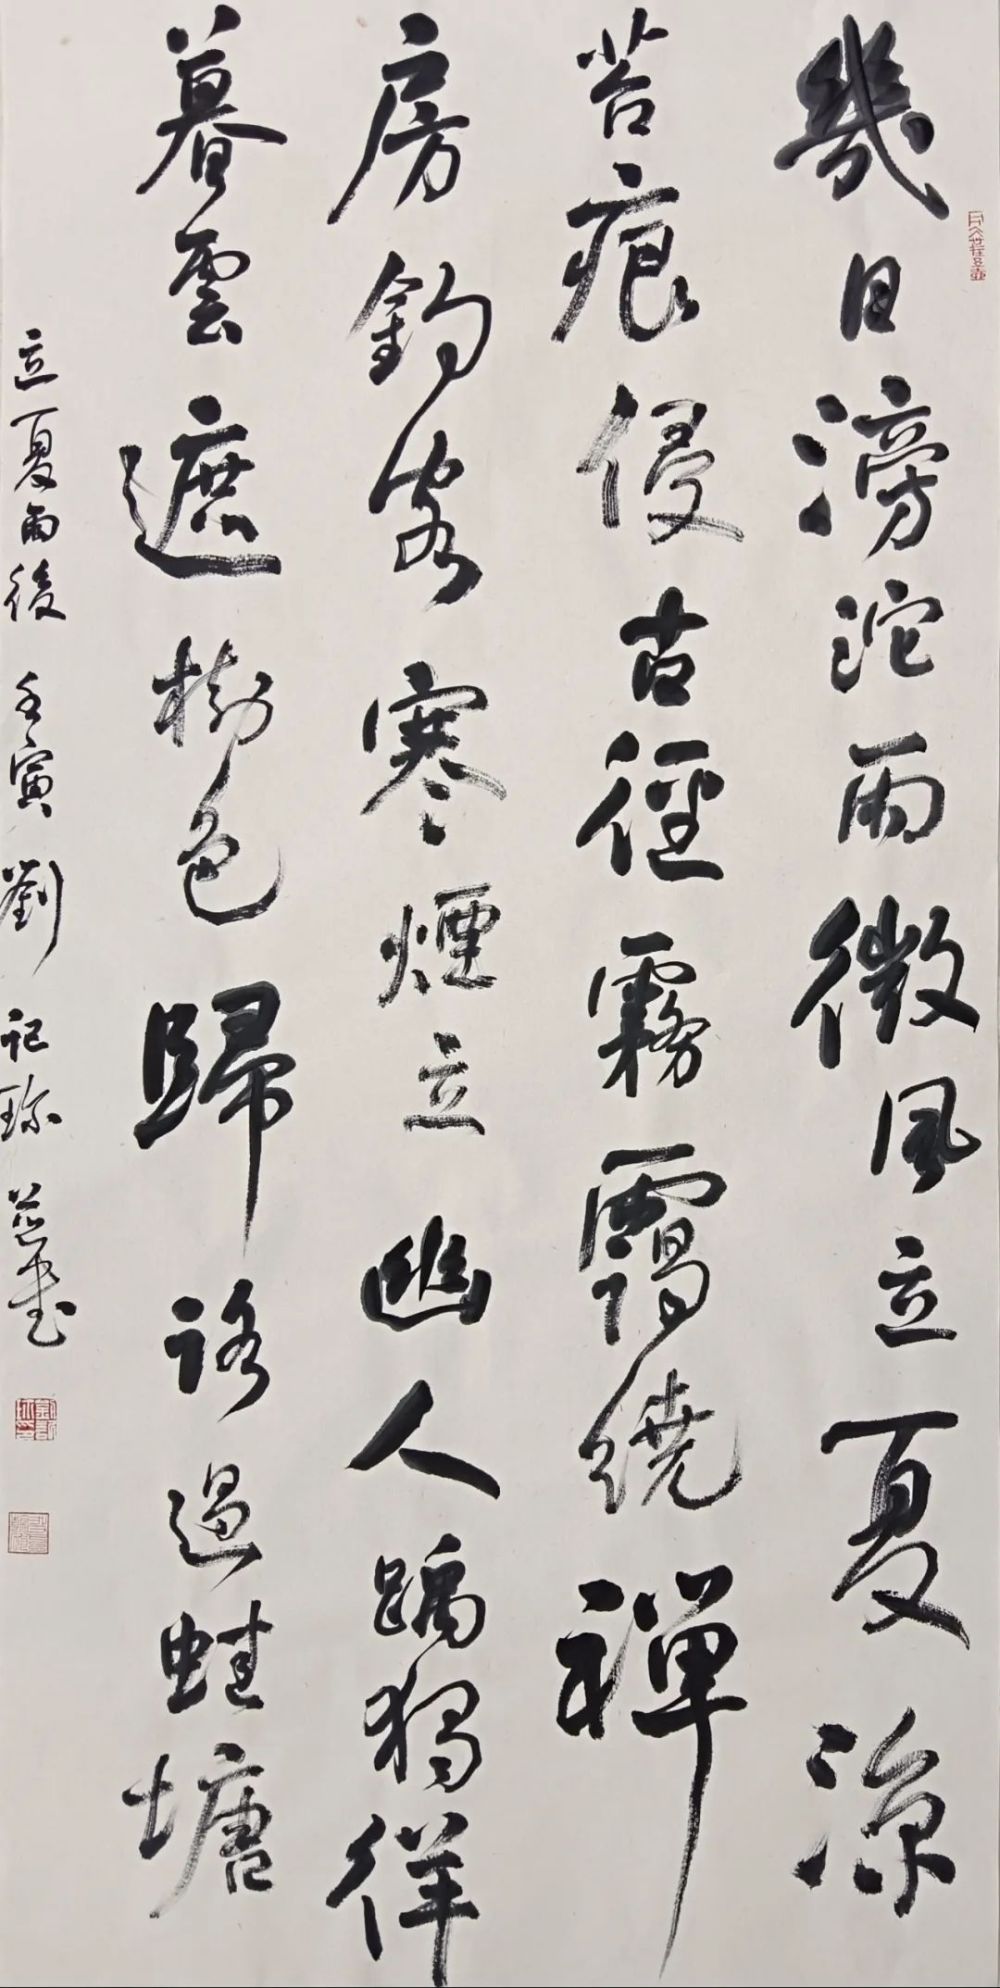 幾日滂沱雨微風立夏涼
苔痕侵古徑霧靄繞禪
房釣客寒煙立幽人踽獨徉
暮雲遮樹色歸路過蛙塘
立夏雨後 壬寅 劉記珎 並書